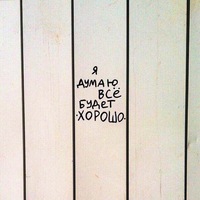 Я
ДУМАЮ
ВСЁ
БУДЕТ
ХОРОШО.